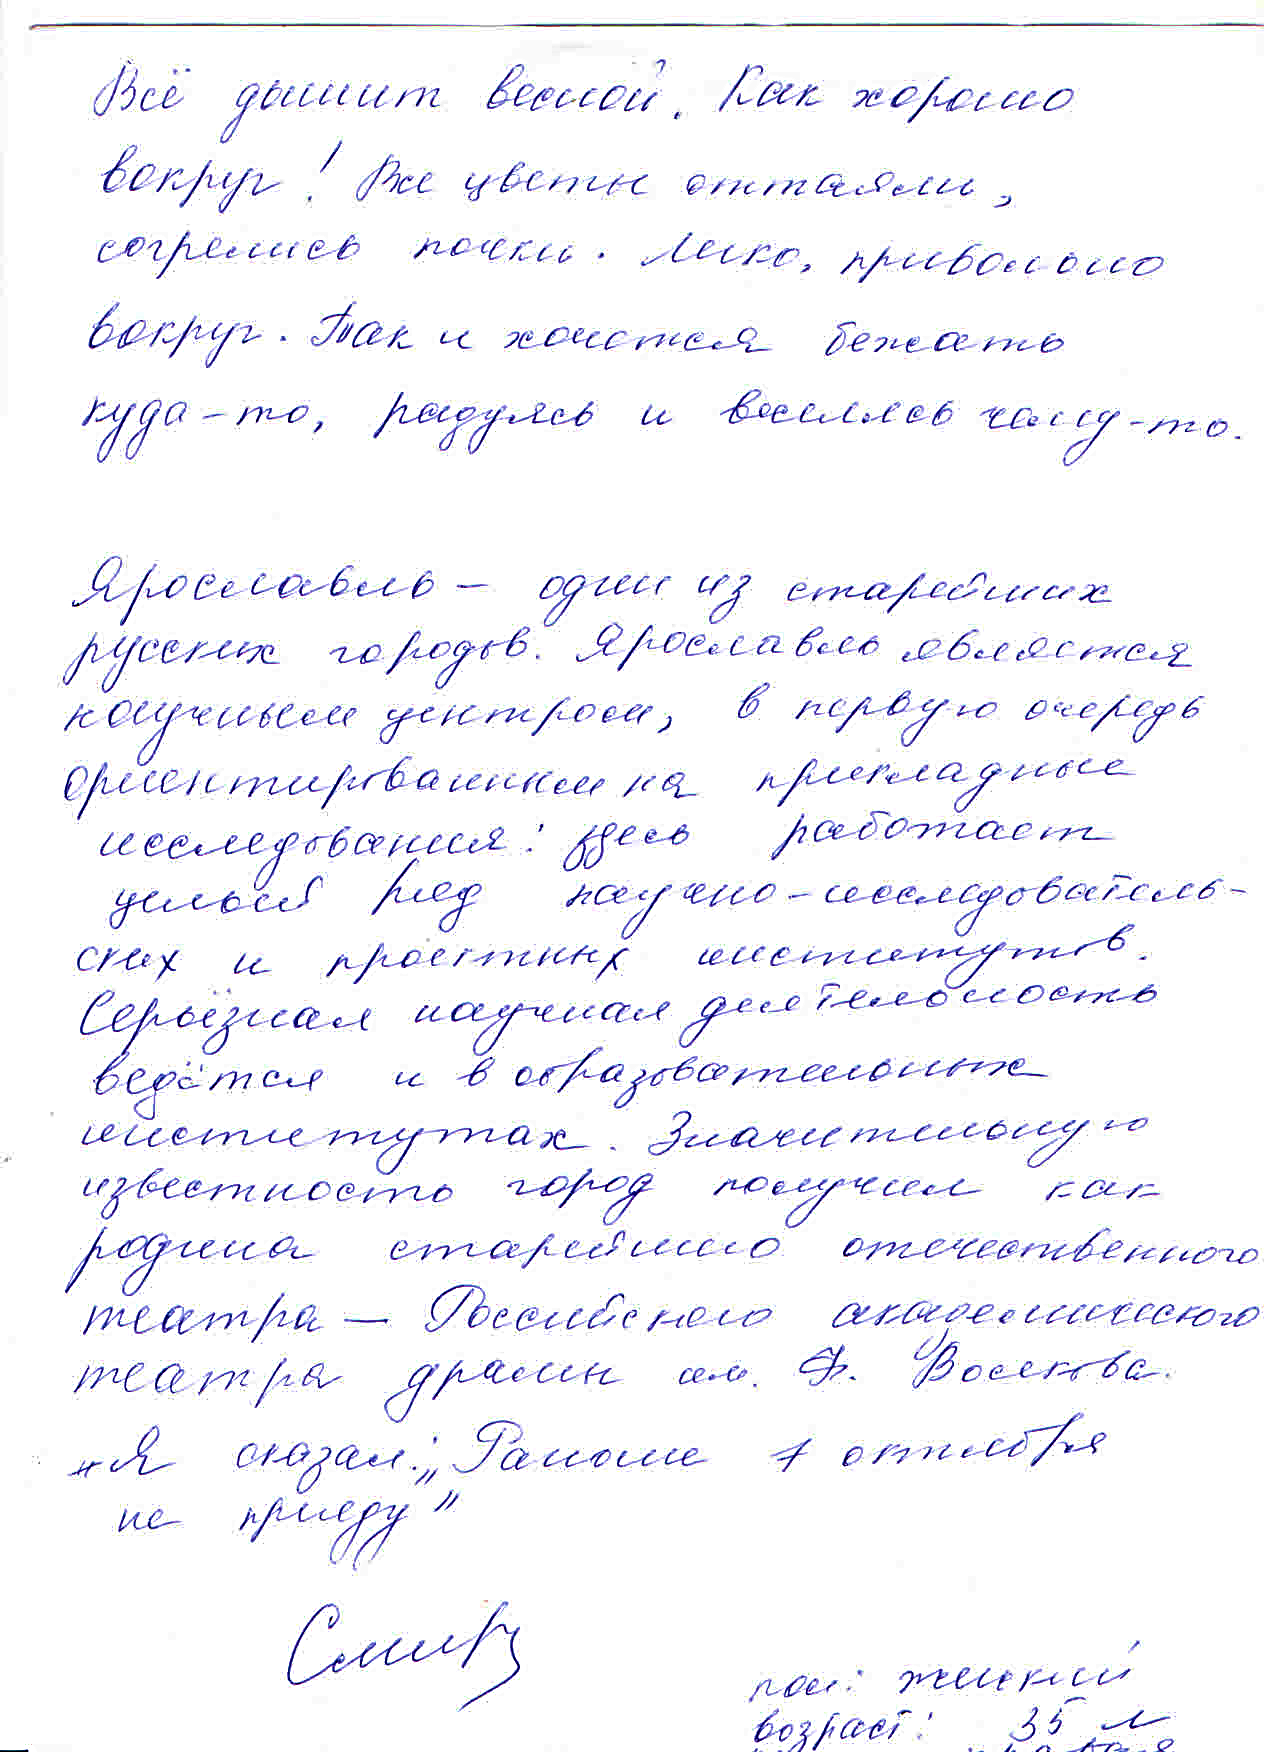 Всё дышит весной. Как хорошо
вокруг! Все цветы оттаяли,
согрелись почки. Легко, привольно
вокруг. Так и хочется бежать
куда-то, радуясь и веселясь чему-то.
Ярославль – один из старейших
русских городов. Ярославль является
научным центром, в первую очередь
ориентированным на прикладные
исследования: здесь работает
целый ряд научно-исследователь-
ских и проектных институтов.
Серьёзная научная деятельность
ведётся и в образовательных
институтах. Значительную
известность город получил как
родина старейшего отечественного
театра – Российского академического
театра драмы им. Ф. Волкова.
Я сказал: „Раньше 1 октября
не приеду"
пол: женский
возраст: 35 л